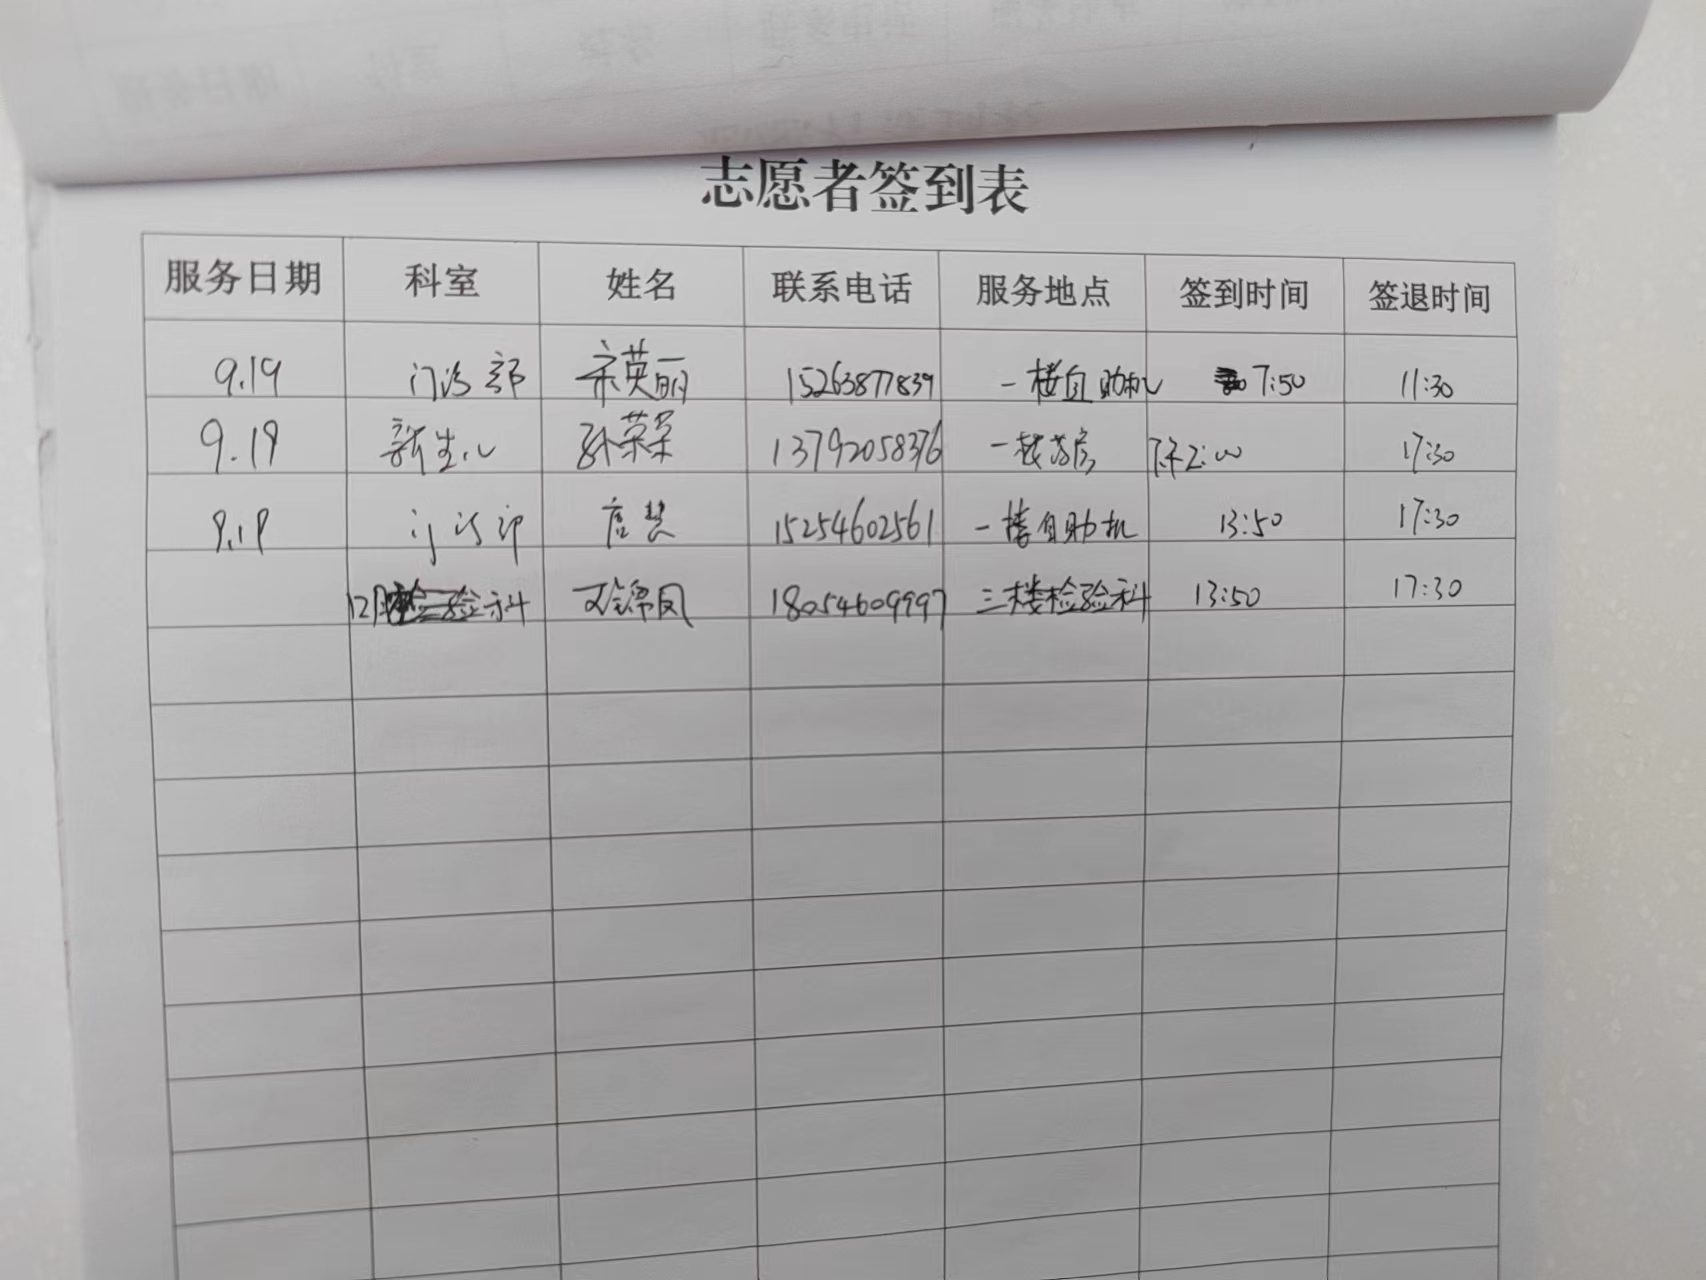 志愿者签到表
服务日期 科室 姓名 联系电话 服务地点 签到时间 签退时间
9.19 门诊部 宋英丽 15263877839 一楼自助机 7:50 11:30
9.19 新生儿 孙荣荣 13792058376 一楼药房 下午2:00 17:30
9.19 门诊部 唐慧 15254602561 一楼自助机 13:50 17:30
验科 锦凤 18054609997 三楼检验科 13:50 17:30